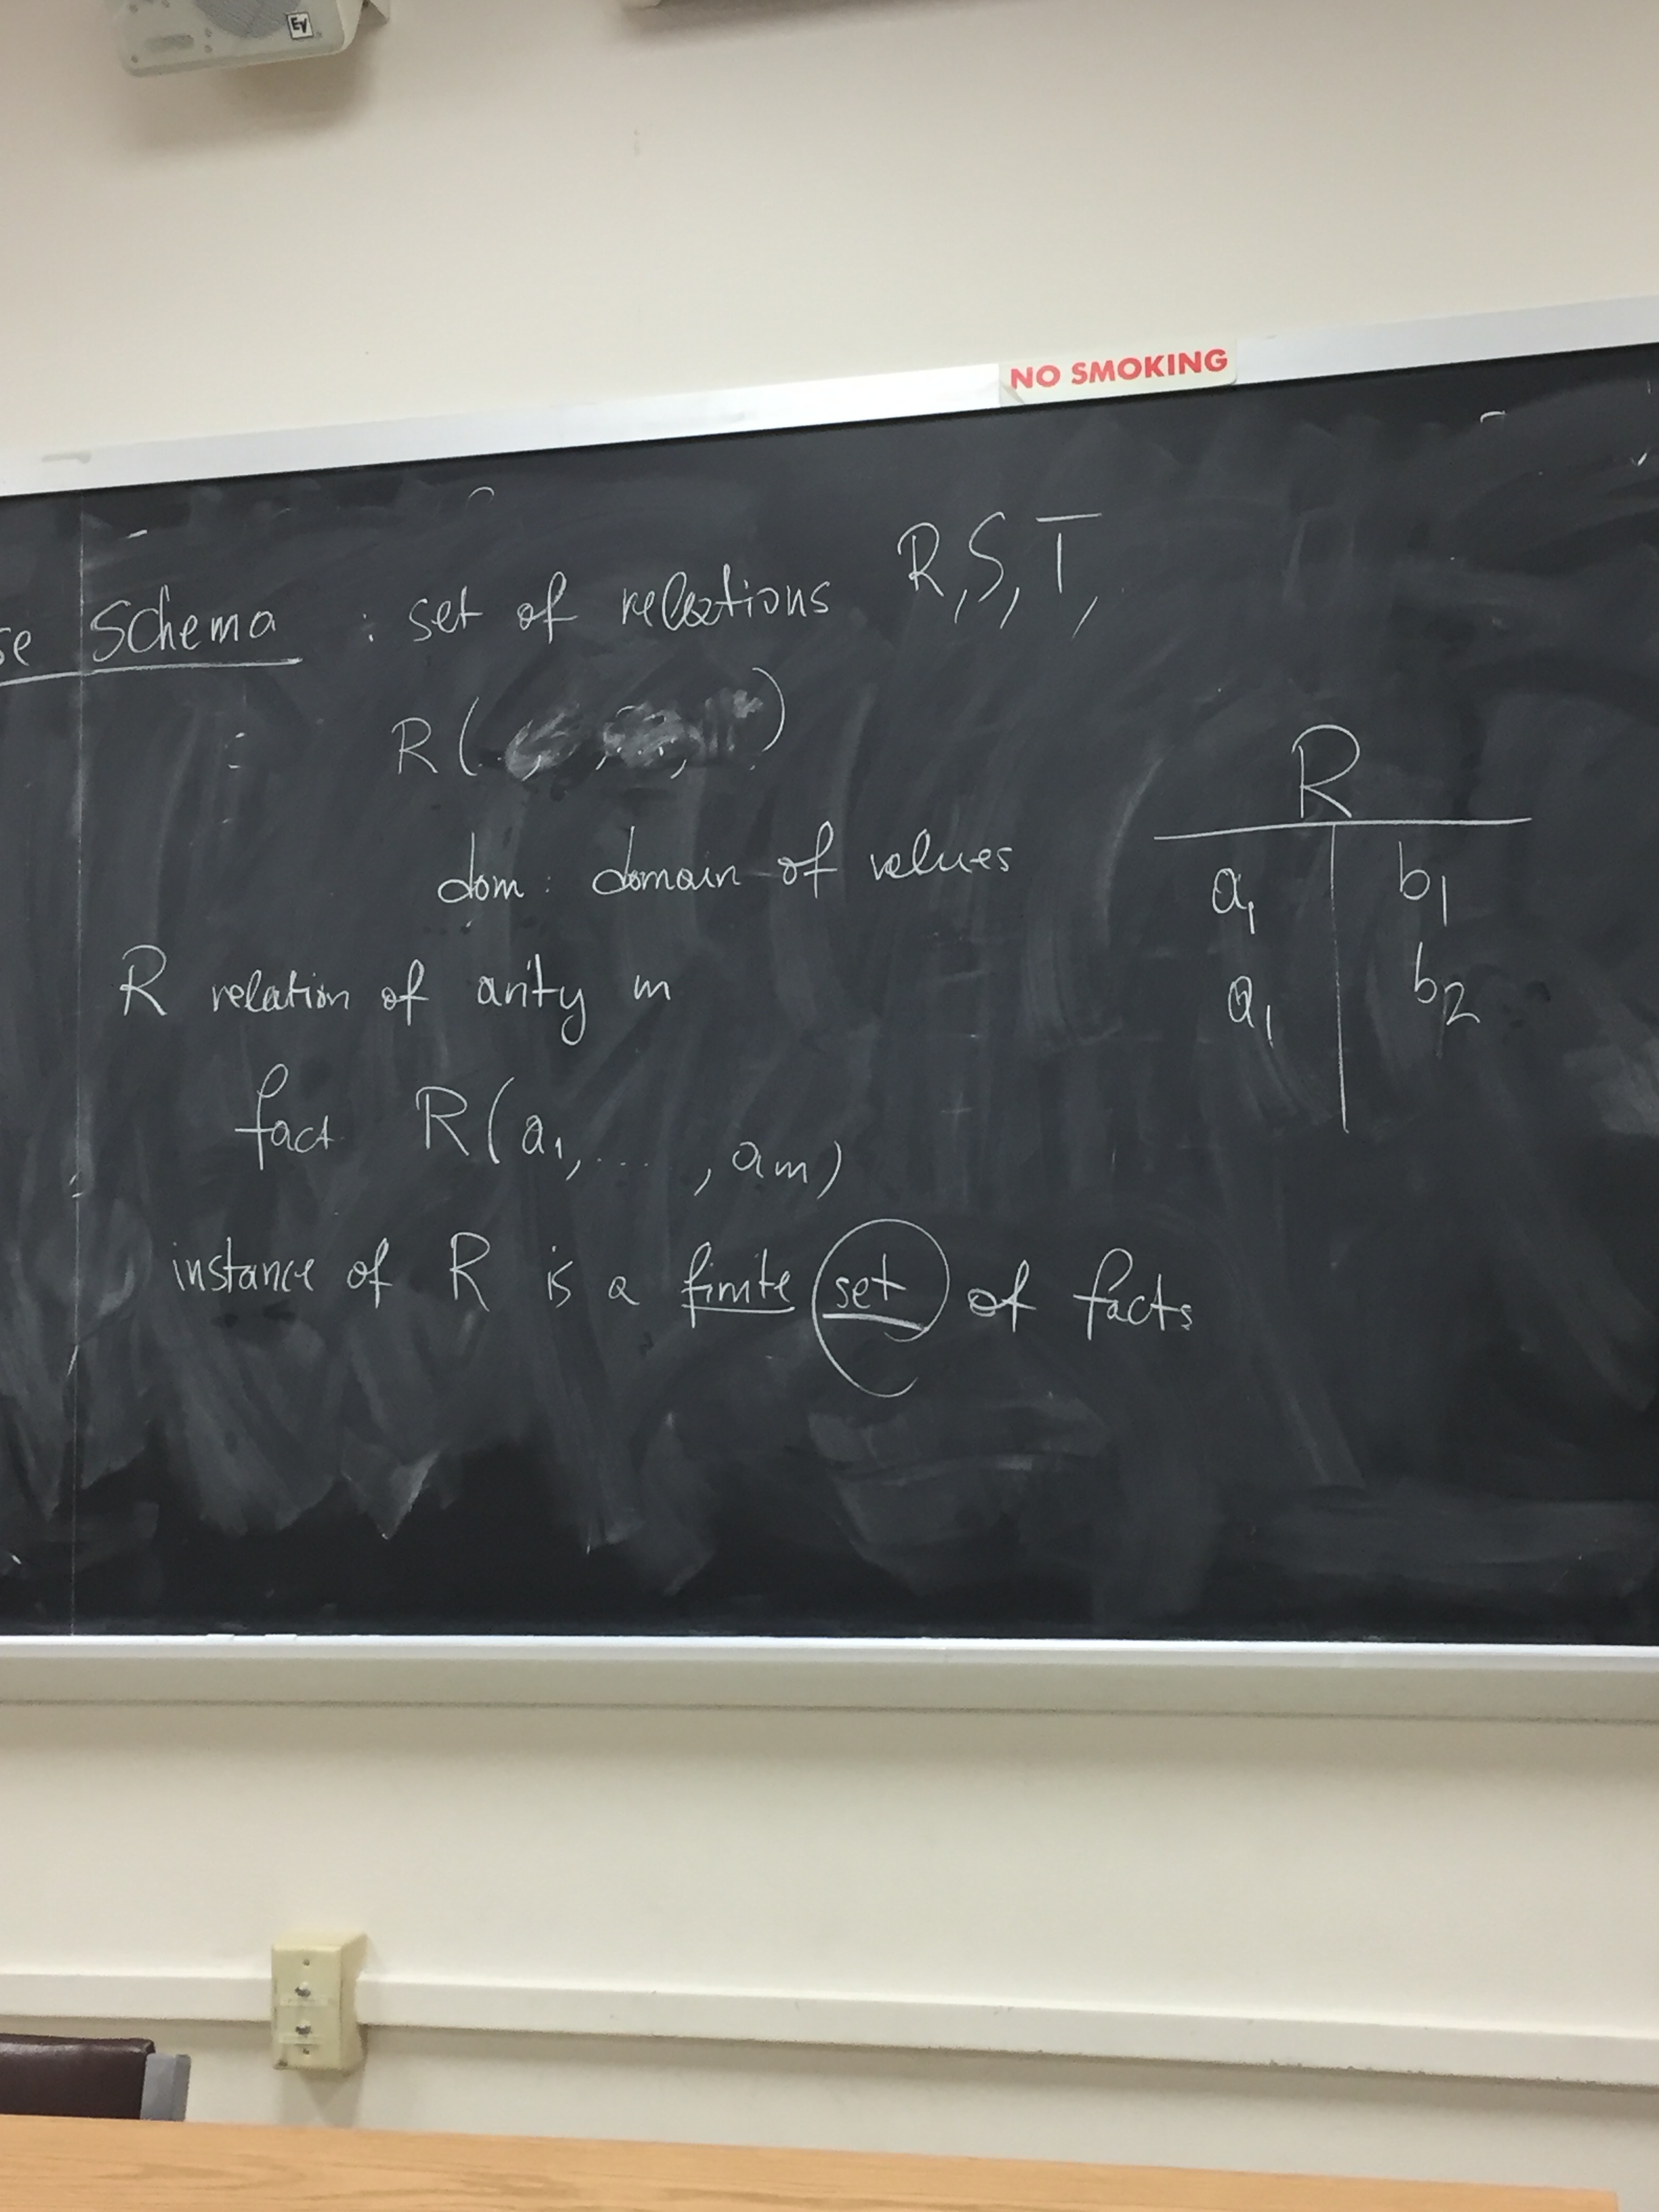 EV
NO SMOKING
se Schema : set of relations R, S, T,
R( , , , )
dom: domain of values
R
a1 b1
a1 b2
R relation of arity m
fact R(a1, ... , am)
instance of R is a finite set of facts